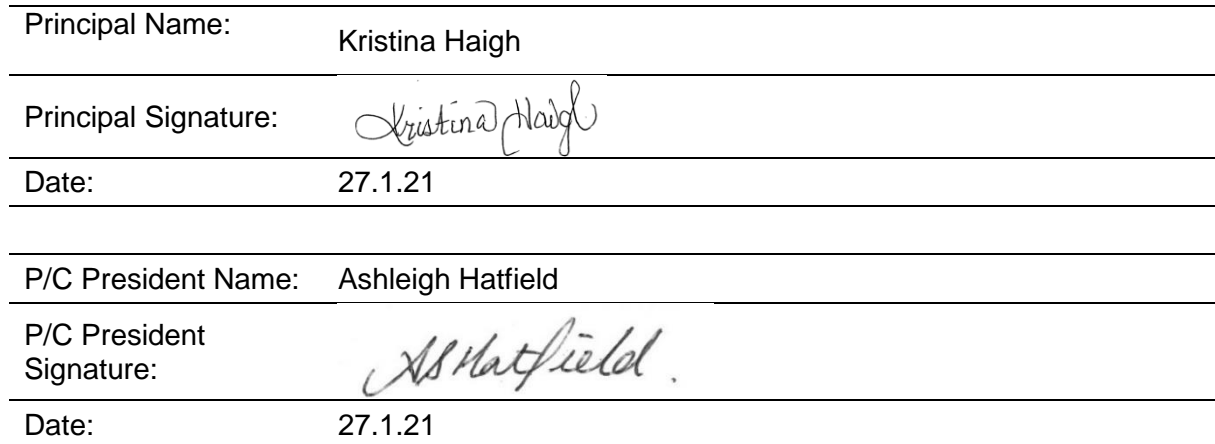 Principal Name: Kristina Haigh
Principal Signature: Kristina Haigh
Date: 27.1.21
P/C President Name: Ashleigh Hatfield
P/C President
Signature: AS Hatfield.
Date: 27.1.21